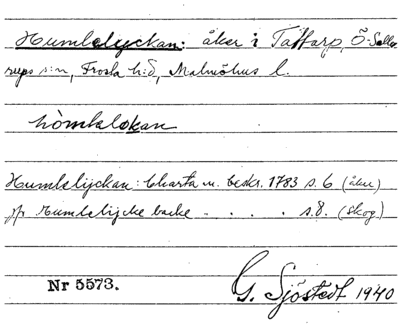 Humlelyckan: åker i Tattarp, Ö. Salle
rups s:n, Frosta h:d, Malmöhus l.
hòmlelokan
Humlelyckan: Charta m. beskr. 1783 s. 6 (åker)
jfr Humlelycke backe . . . . s. 8. (skog)
Nr 5573.
G. Sjöstedt 1940